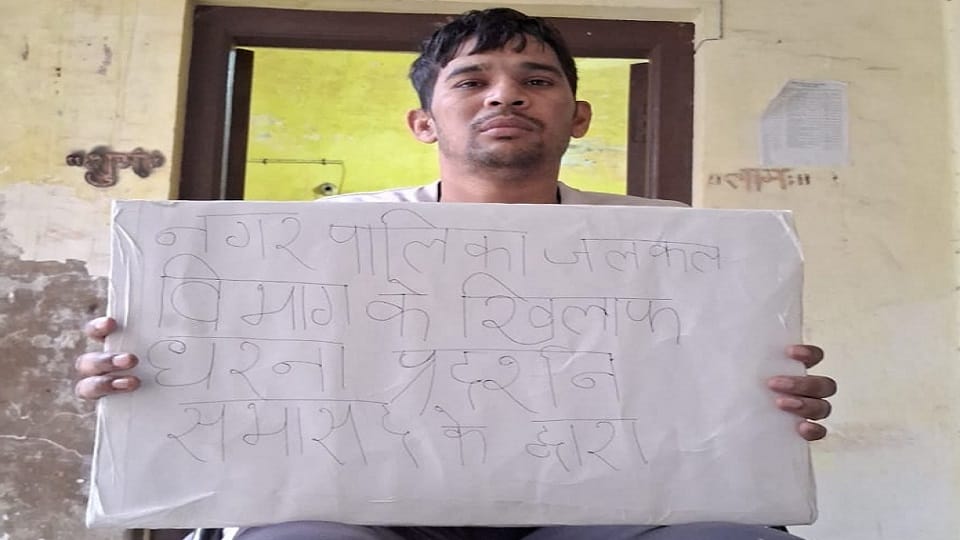 "शुभ"
"लाभः"
नगर पालिका जलकल
विभाग के खिलाफ
धरना प्रदर्शन
सभासद के द्वारा